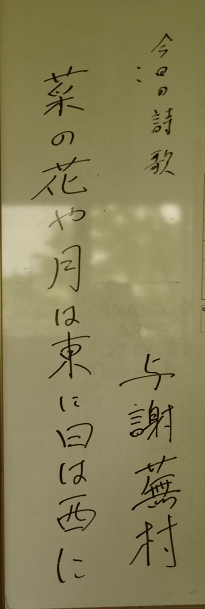 今日の詩歌
与謝蕪村
菜の花や月は東に日は西に